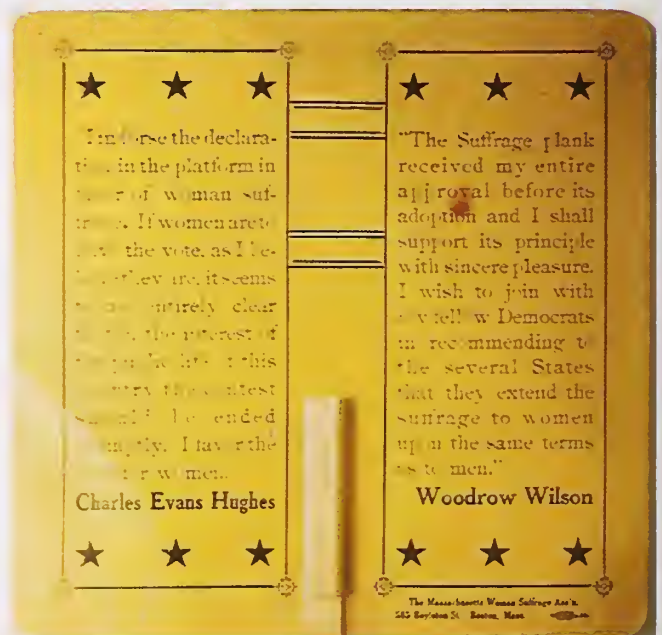 "I indorse the declara-
tion in the platform in
favor of woman suf-
frage. If women are to
have the vote, as I be-
lieve they are, it seems
to me entirely clear
that in the interest of
the public life of this
country the contest
should be ended
promptly. I favor the
vote for women."
Charles Evans Hughes
"The Suffrage plank
received my entire
approval before its
adoption and I shall
support its principle
with sincere pleasure.
I wish to join with
my fellow Democrats
in recommending to
the several States
that they extend the
suffrage to women
upon the same terms
as to men."
Woodrow Wilson
The Massachusetts Woman Suffrage Ass'n.
585 Boylston St. Boston, Mass.